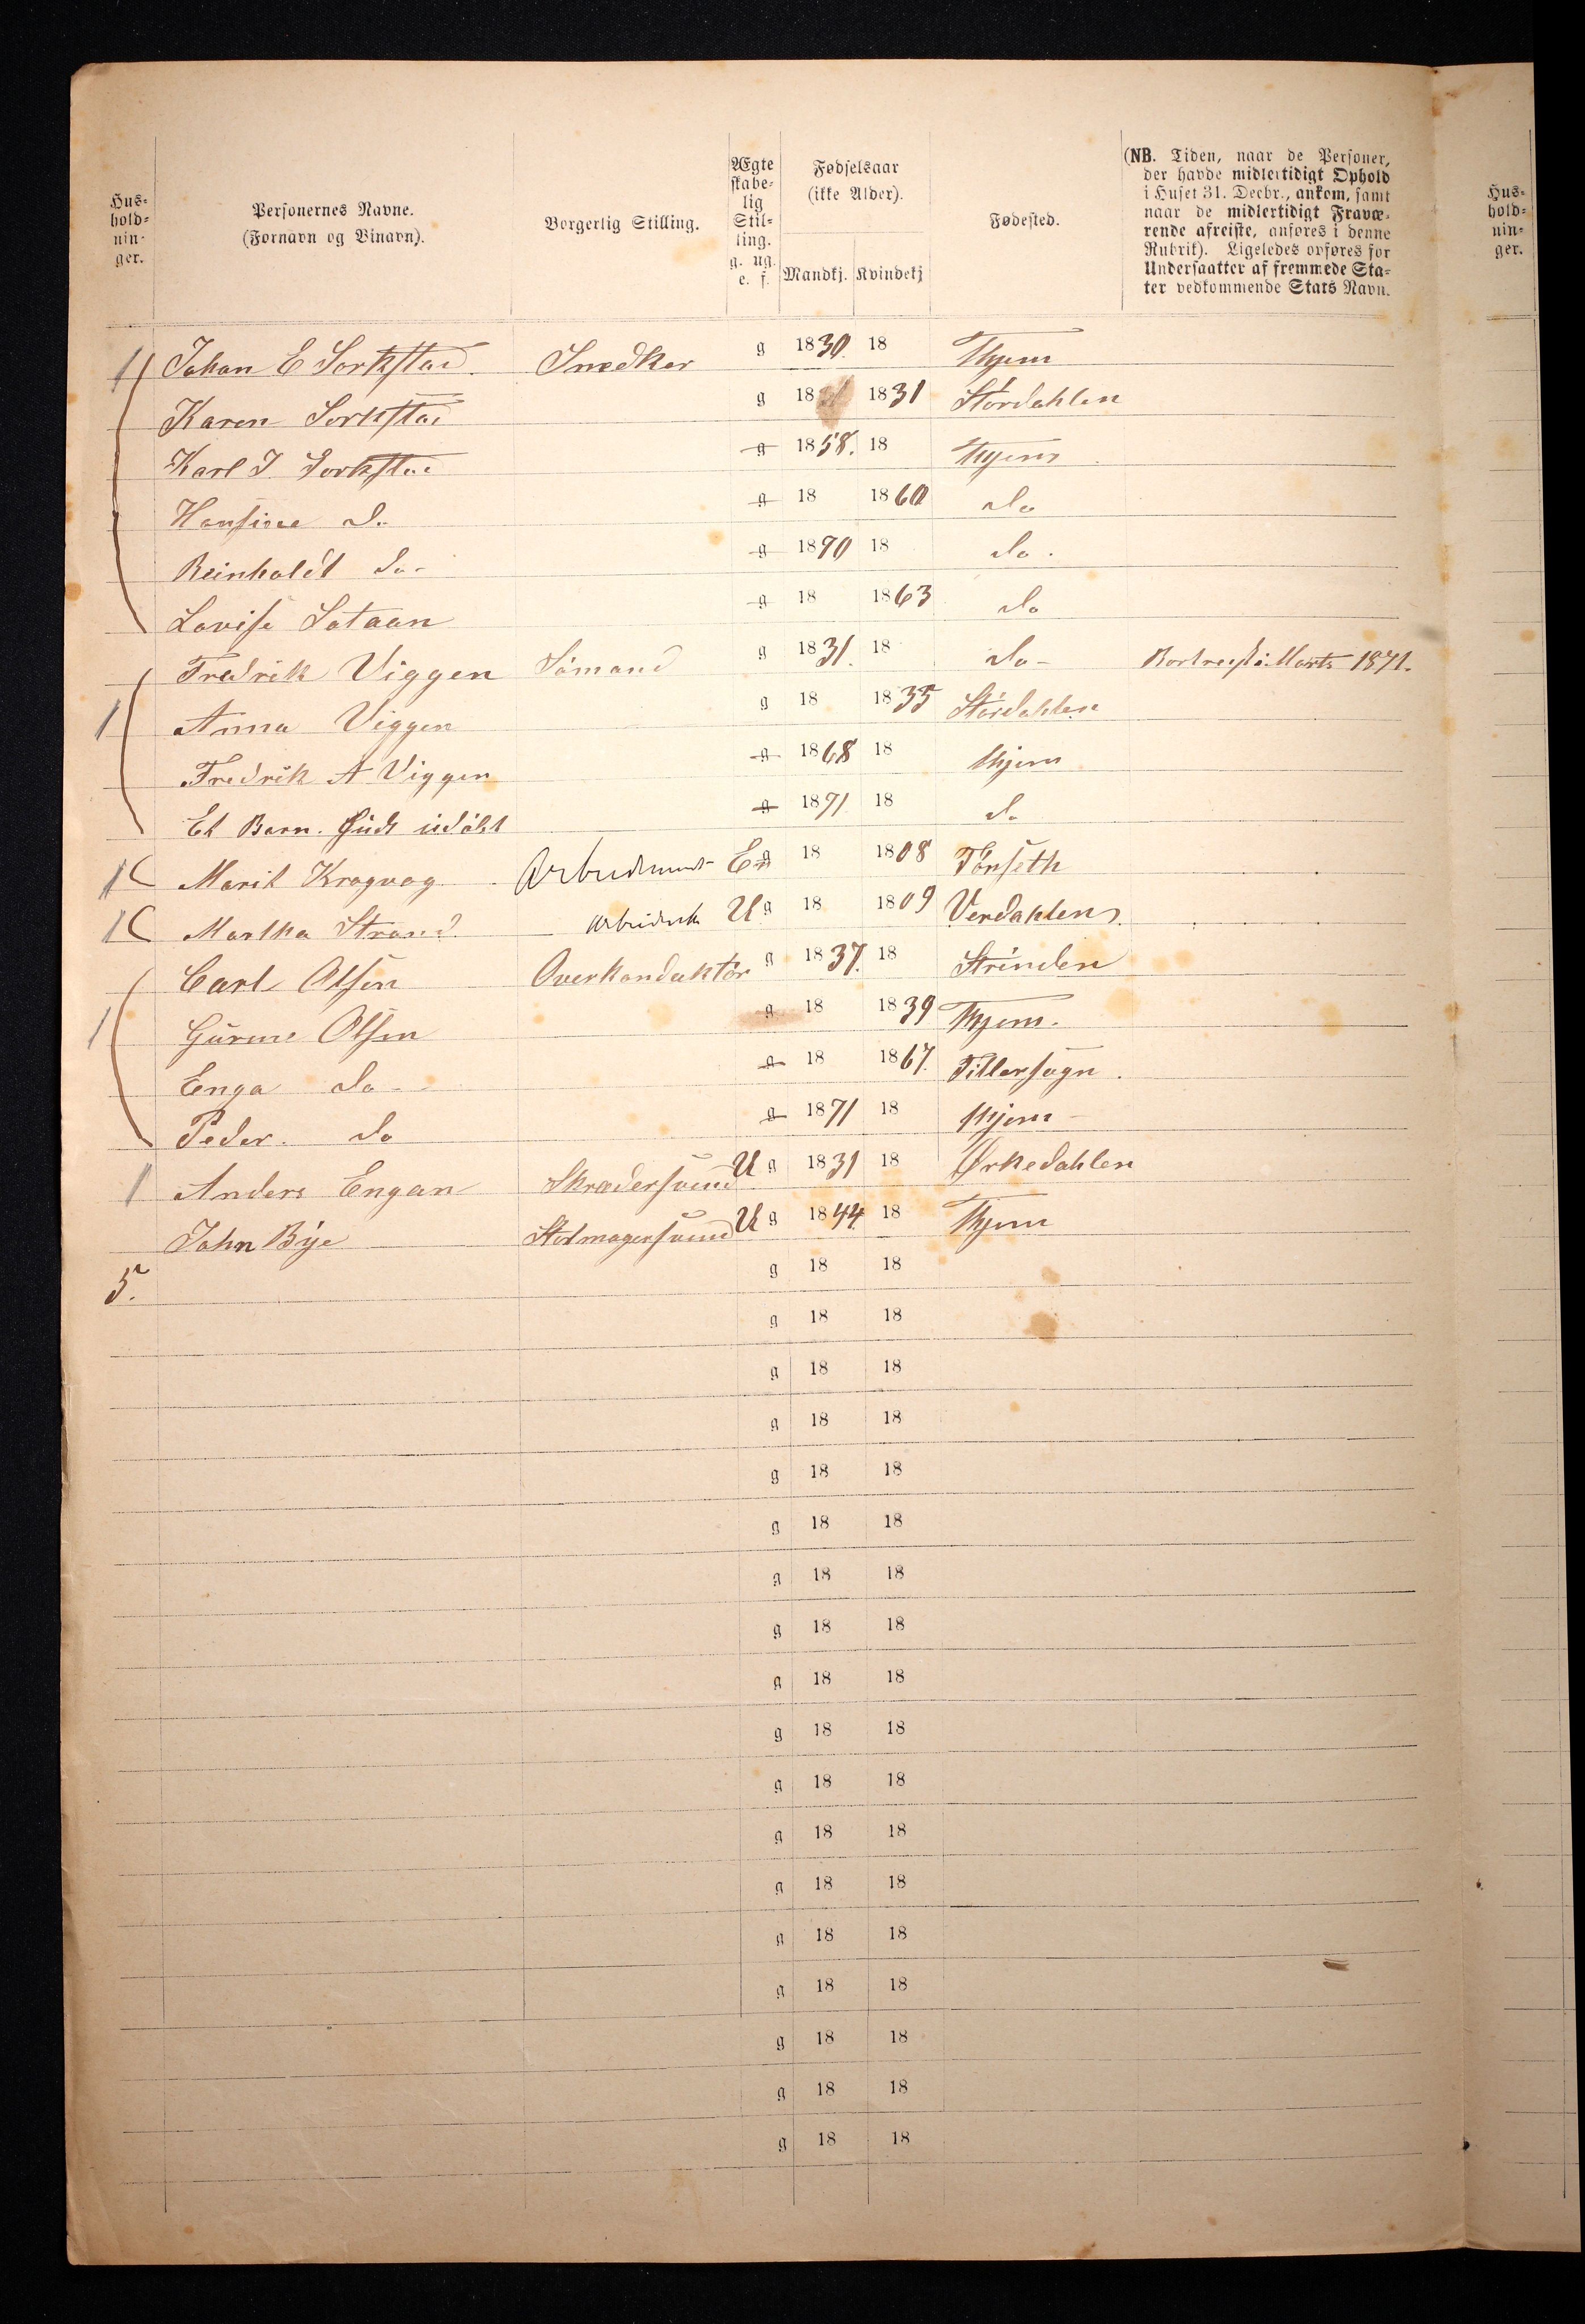 Hus-
hold-
nin-
ger.
Personernes Navne.
(Fornavn og Vinavn).
Borgerlig Stilling.
Ægte
skabe-
lig
Stil-
ling.
g. ug.
e. f.
Fødselsaar
(ikke Alder).
Mandkj. Kvindekj
Fødested.
(NB. Tiden, naar de Personer,
der havde midlertidigt Ophold
i Huset 31. Decbr., ankom, samt
naar de midlertidigt Fravæ-
rende afreiste, anføres i denne
Rubrik). Ligeledes opføres for
Undersaatter af fremmede Sta-
ter vedkommende Stats Navn.
Hus-
hold-
nin-
ger.
1 Johan E Sorkstad. Snedker g 1830. 18 Thjem
Karen Sorkstad g 18 1831 Stördahlen
Karl J. Sorkstad g 1858. 18 Thjem
Hansine Do g 18 1860 Do
Reinholdt Do- g 1870 18 Do.
Lovise Sataan g 18 1863 Do
Fredrik Viggen Sömand g 1831. 18 Do- Bortreist i Marts 1871.
1 Anna Viggen g 18 1835 Stördahlen
Fredrik A Viggen g 1868 18 Thjem
Et Barn. Guds udöbt g 1871 18 Do
1 Marit Kragvag E g 18 1808 Tönseth
1 Martha Strand U g 18 1809 Verdahlen
Carl Olsen Overkonduktör g 1837. 18 Strinden
1 Gurine Olsen g 18 1839 Thjem.
Enga Do- g 18 1867. Tillersogn.
Peder. Do g 1871 18 Thjem-
1 Anders Engan Skrædersvend U g 1831 18 Ørkedahlen
John Bye Stolmagersvend U g 1844. 18 Thjem
5. g 18 18
g 18 18
g 18 18
g 18 18
g 18 18
g 18 18
g 18 18
g 18 18
g 18 18
g 18 18
g 18 18
g 18 18
g 18 18
g 18 18
g 18 18
g 18 18
g 18 18
g 18 18